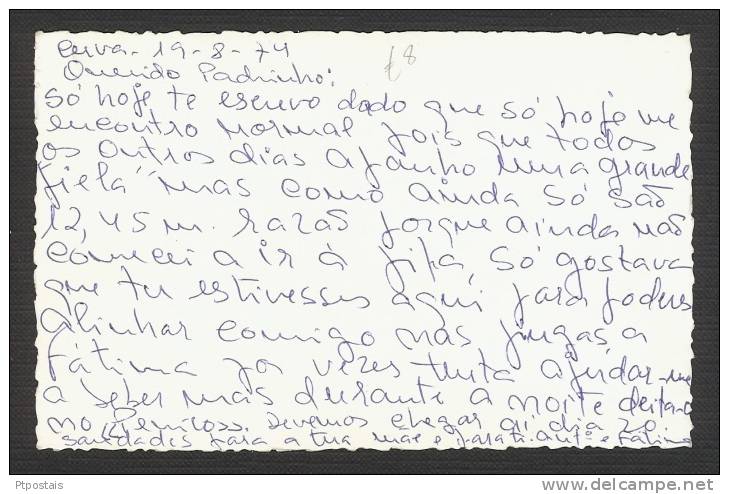 19-8-74
£8
Querido Padrinho:
Só hoje te escrevo dado que só hoje me
encontro normal pois que todos
os outros dias apanho uma grande
mas como ainda só são
12,45 m. razão porque ainda não
comecei a ir à só gostava
que tu estivesses aqui para poderes
alinhar comigo nas pingas, a
Fátima por vezes tenta ajudar-me
a beber mas durante a noite deita-o
no Devemos chegar dia 20
saudades para a tua mãe e para ti. e Fátima
Ptpostais
delcampe.net